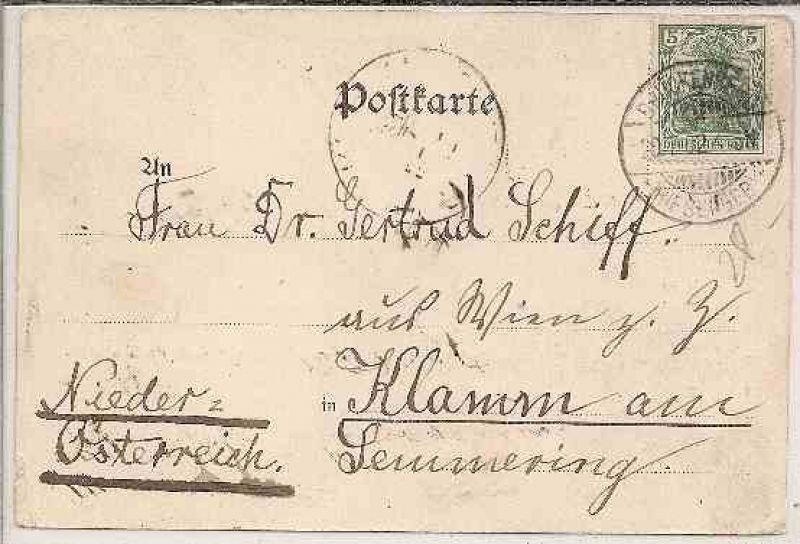 5 5
DEUTSCHES REICH
Postkarte
An
Frau Dr. Gertrud Schiff.
aus Wien z. Z.
in Klamm am
Semmering.
Nieder=
Österreich.